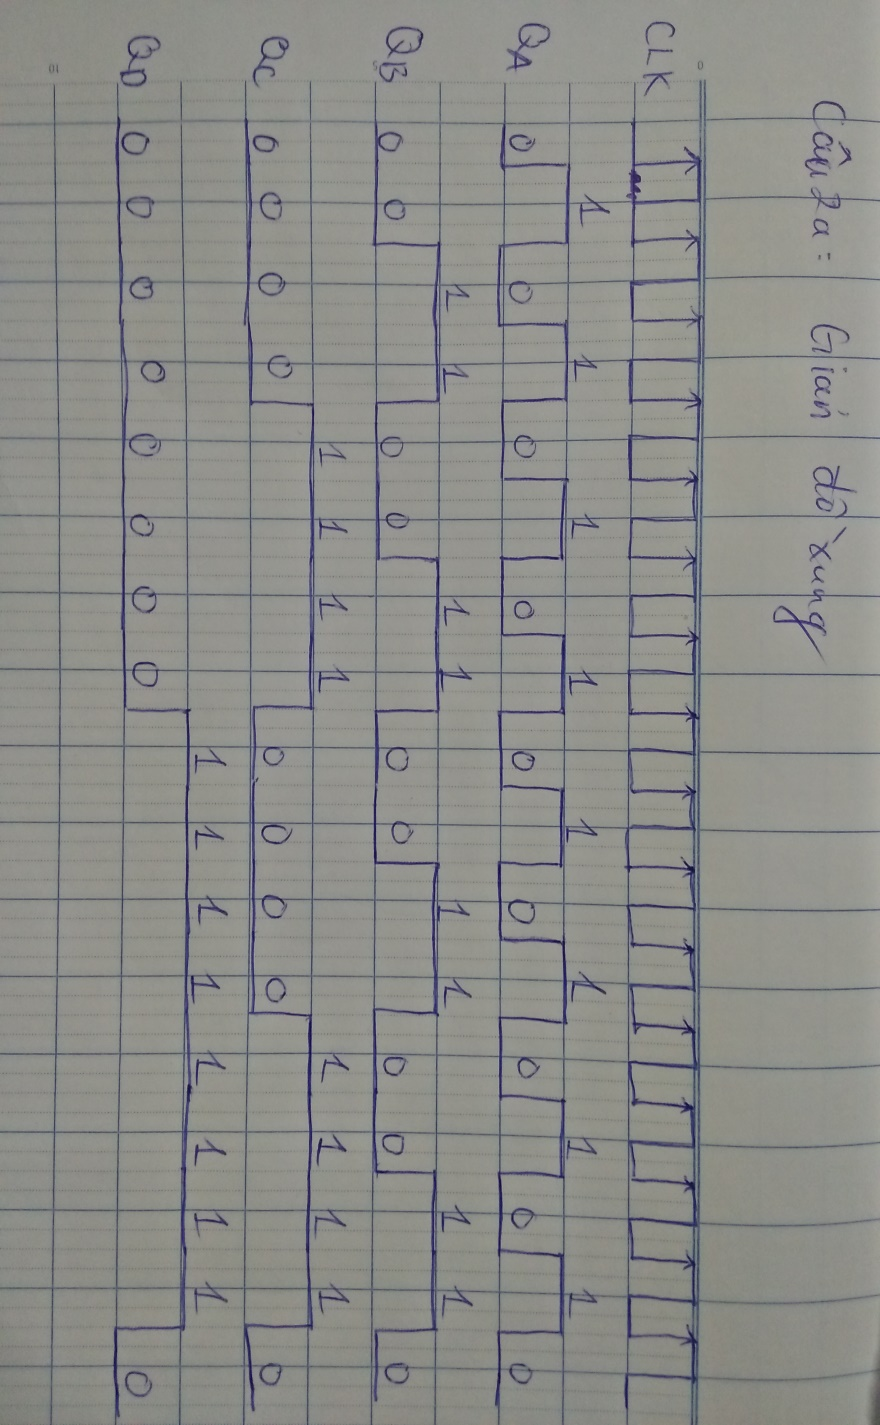 Câu 2a: Giản đồ xung
0
CLK
QA 0 1 0 1 0 1 0 1 0 1 0 1 0 1 0 1 0
5
QB 0 0 1 1 0 0 1 1 0 0 1 1 0 0 1 1 0
QC 0 0 0 0 1 1 1 1 0 0 0 0 1 1 1 1 0
QD 0 0 0 0 0 0 0 0 1 1 1 1 1 1 1 1 0
10